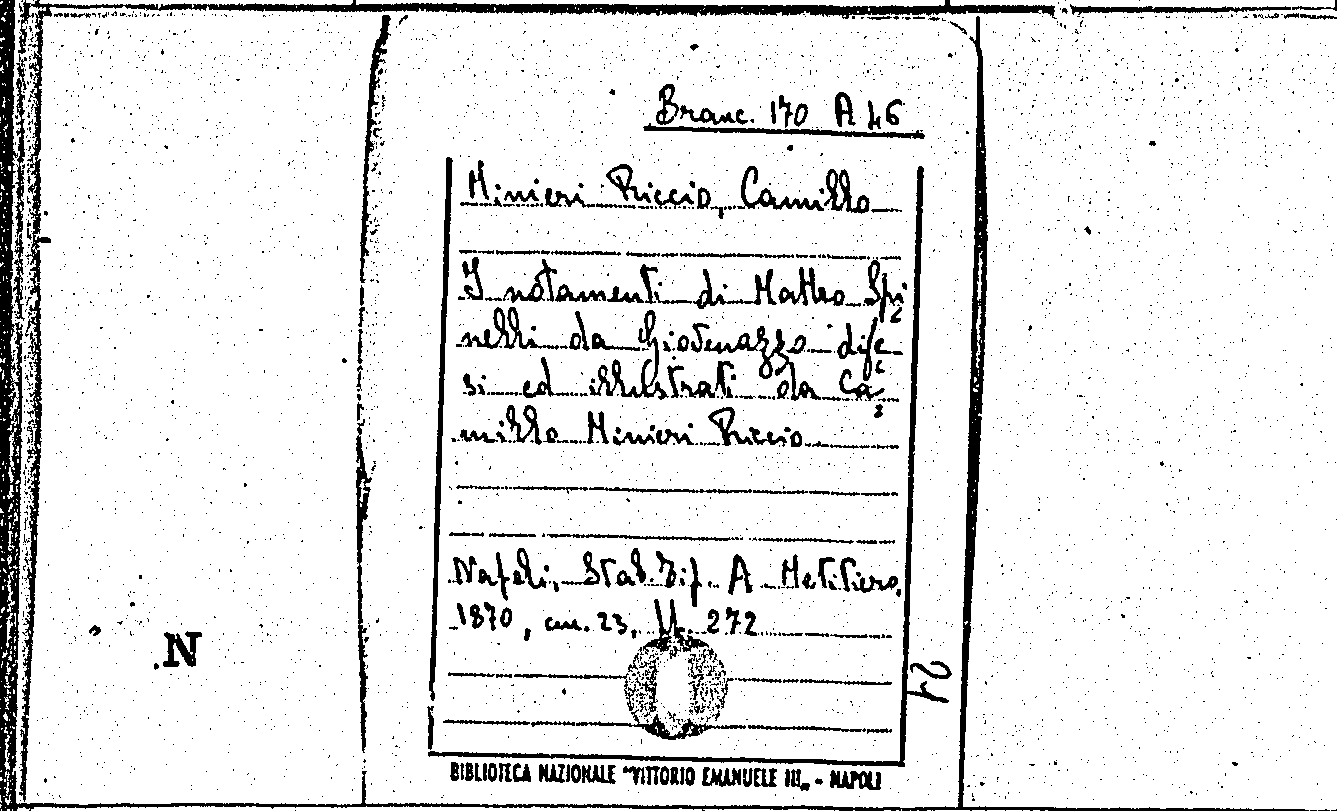 Branc. 170 A 46
Minieri Riccio, Camillo
I notamenti di Matteo Spi
nelli da Giovenazzo dife
si ed illustrati da Ca
millo Minieri Riccio
Napoli, Stab. Tip. A Metitiero,
1870, cm. 23, pp. 272
21
N
BIBLIOTECA NAZIONALE "VITTORIO EMANUELE III„ - NAPOLI